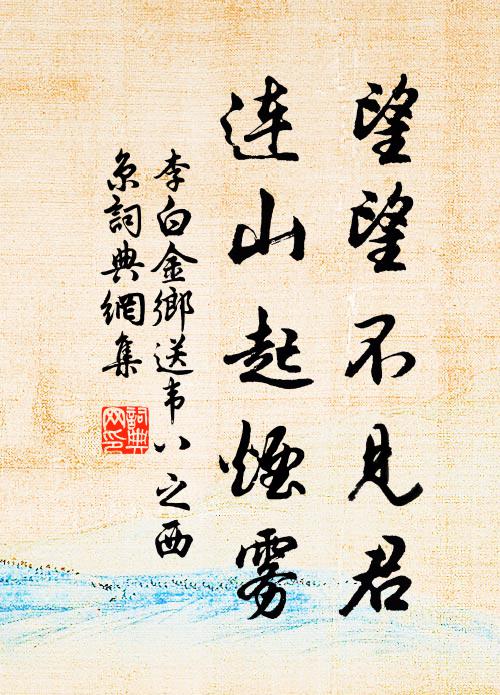 望望不見君
連山起煙霧
李白金鄉送韦八之西
京詞典網集
詞典
网印